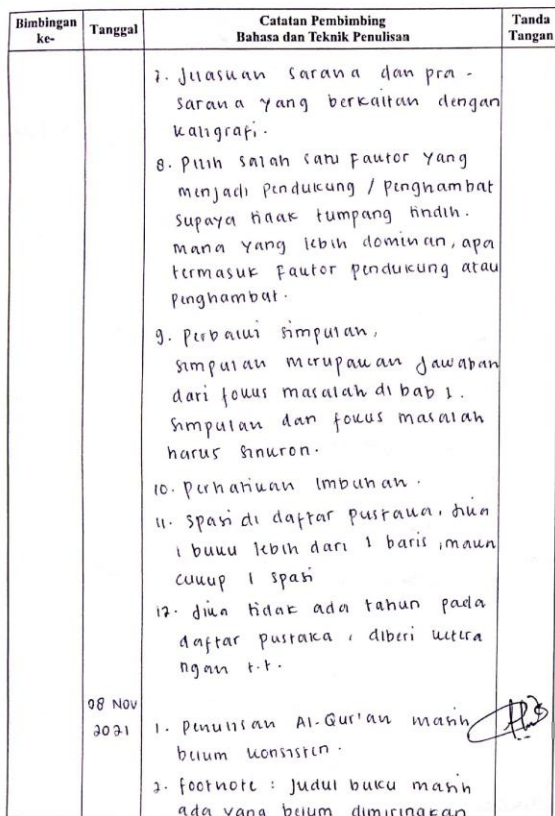 Bimbingan ke-
Tanggal
Catatan Pembimbing
Bahasa dan Teknik Penulisan
Tanda Tangan
7. Jelaskan sarana dan pra-
sarana yang berkaitan dengan
kaligrafi.
8. Pilih salah satu faktor yang
menjadi pendukung / penghambat
supaya tidak tumpang tindih.
mana yang lebih dominan, apa
termasuk faktor pendukung atau
penghambat.
9. Perbaiki simpulan,
simpulan merupakan jawaban
dari fokus masalah di bab 1.
simpulan dan fokus masalah
harus sinkron.
10. Perhatikan imbuhan.
11. Spasi di daftar pustaka, jika
1 buku lebih dari 1 baris, maka
cukup 1 spasi
12. jika tidak ada tahun pada
daftar pustaka, diberi ketera
ngan t.t.
08 Nov
2021
1. Penulisan Al-Qur'an masih
belum konsisten.
2. footnote : Judul buku masih
ada yang belum dimiringkan